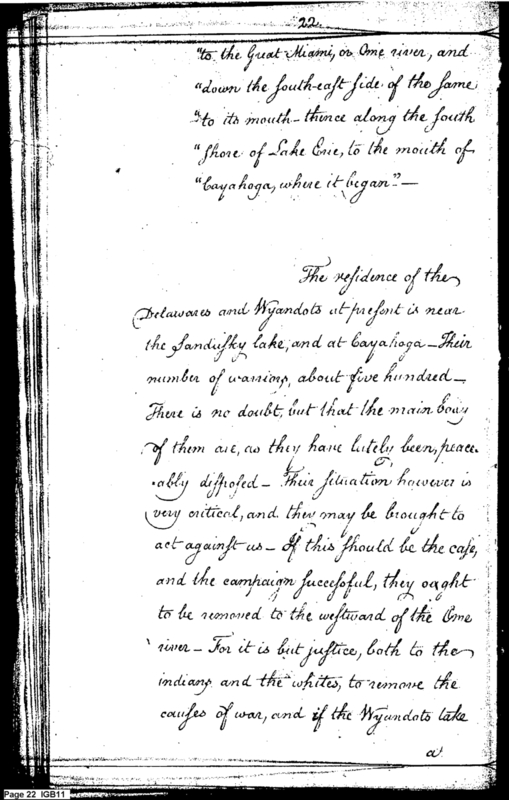 22
"to the Great Miami, or Ome river, and
"down the south-east side of the same
"to its mouth - thence along the south
"shore of Lake Erie, to the mouth of
"Cayahoga, where it began." —
The residence of the
Delawares and Wyandots at present is near
the Sandusky lake, and at Cayahoga - Their
number of warriors, about five hundred -
There is no doubt, but that the main body
of them are, as they have lately been, peace-
-ably disposed - Their situation however is
very critical, and they may be brought to
act against us - If this should be the case,
and the campaign successful, they ought
to be removed to the westward of the Ome
river - For it is but justice, both to the
indians and the whites, to remove the
causes of war, and if the Wyandots take
a
Page 22 IGB11